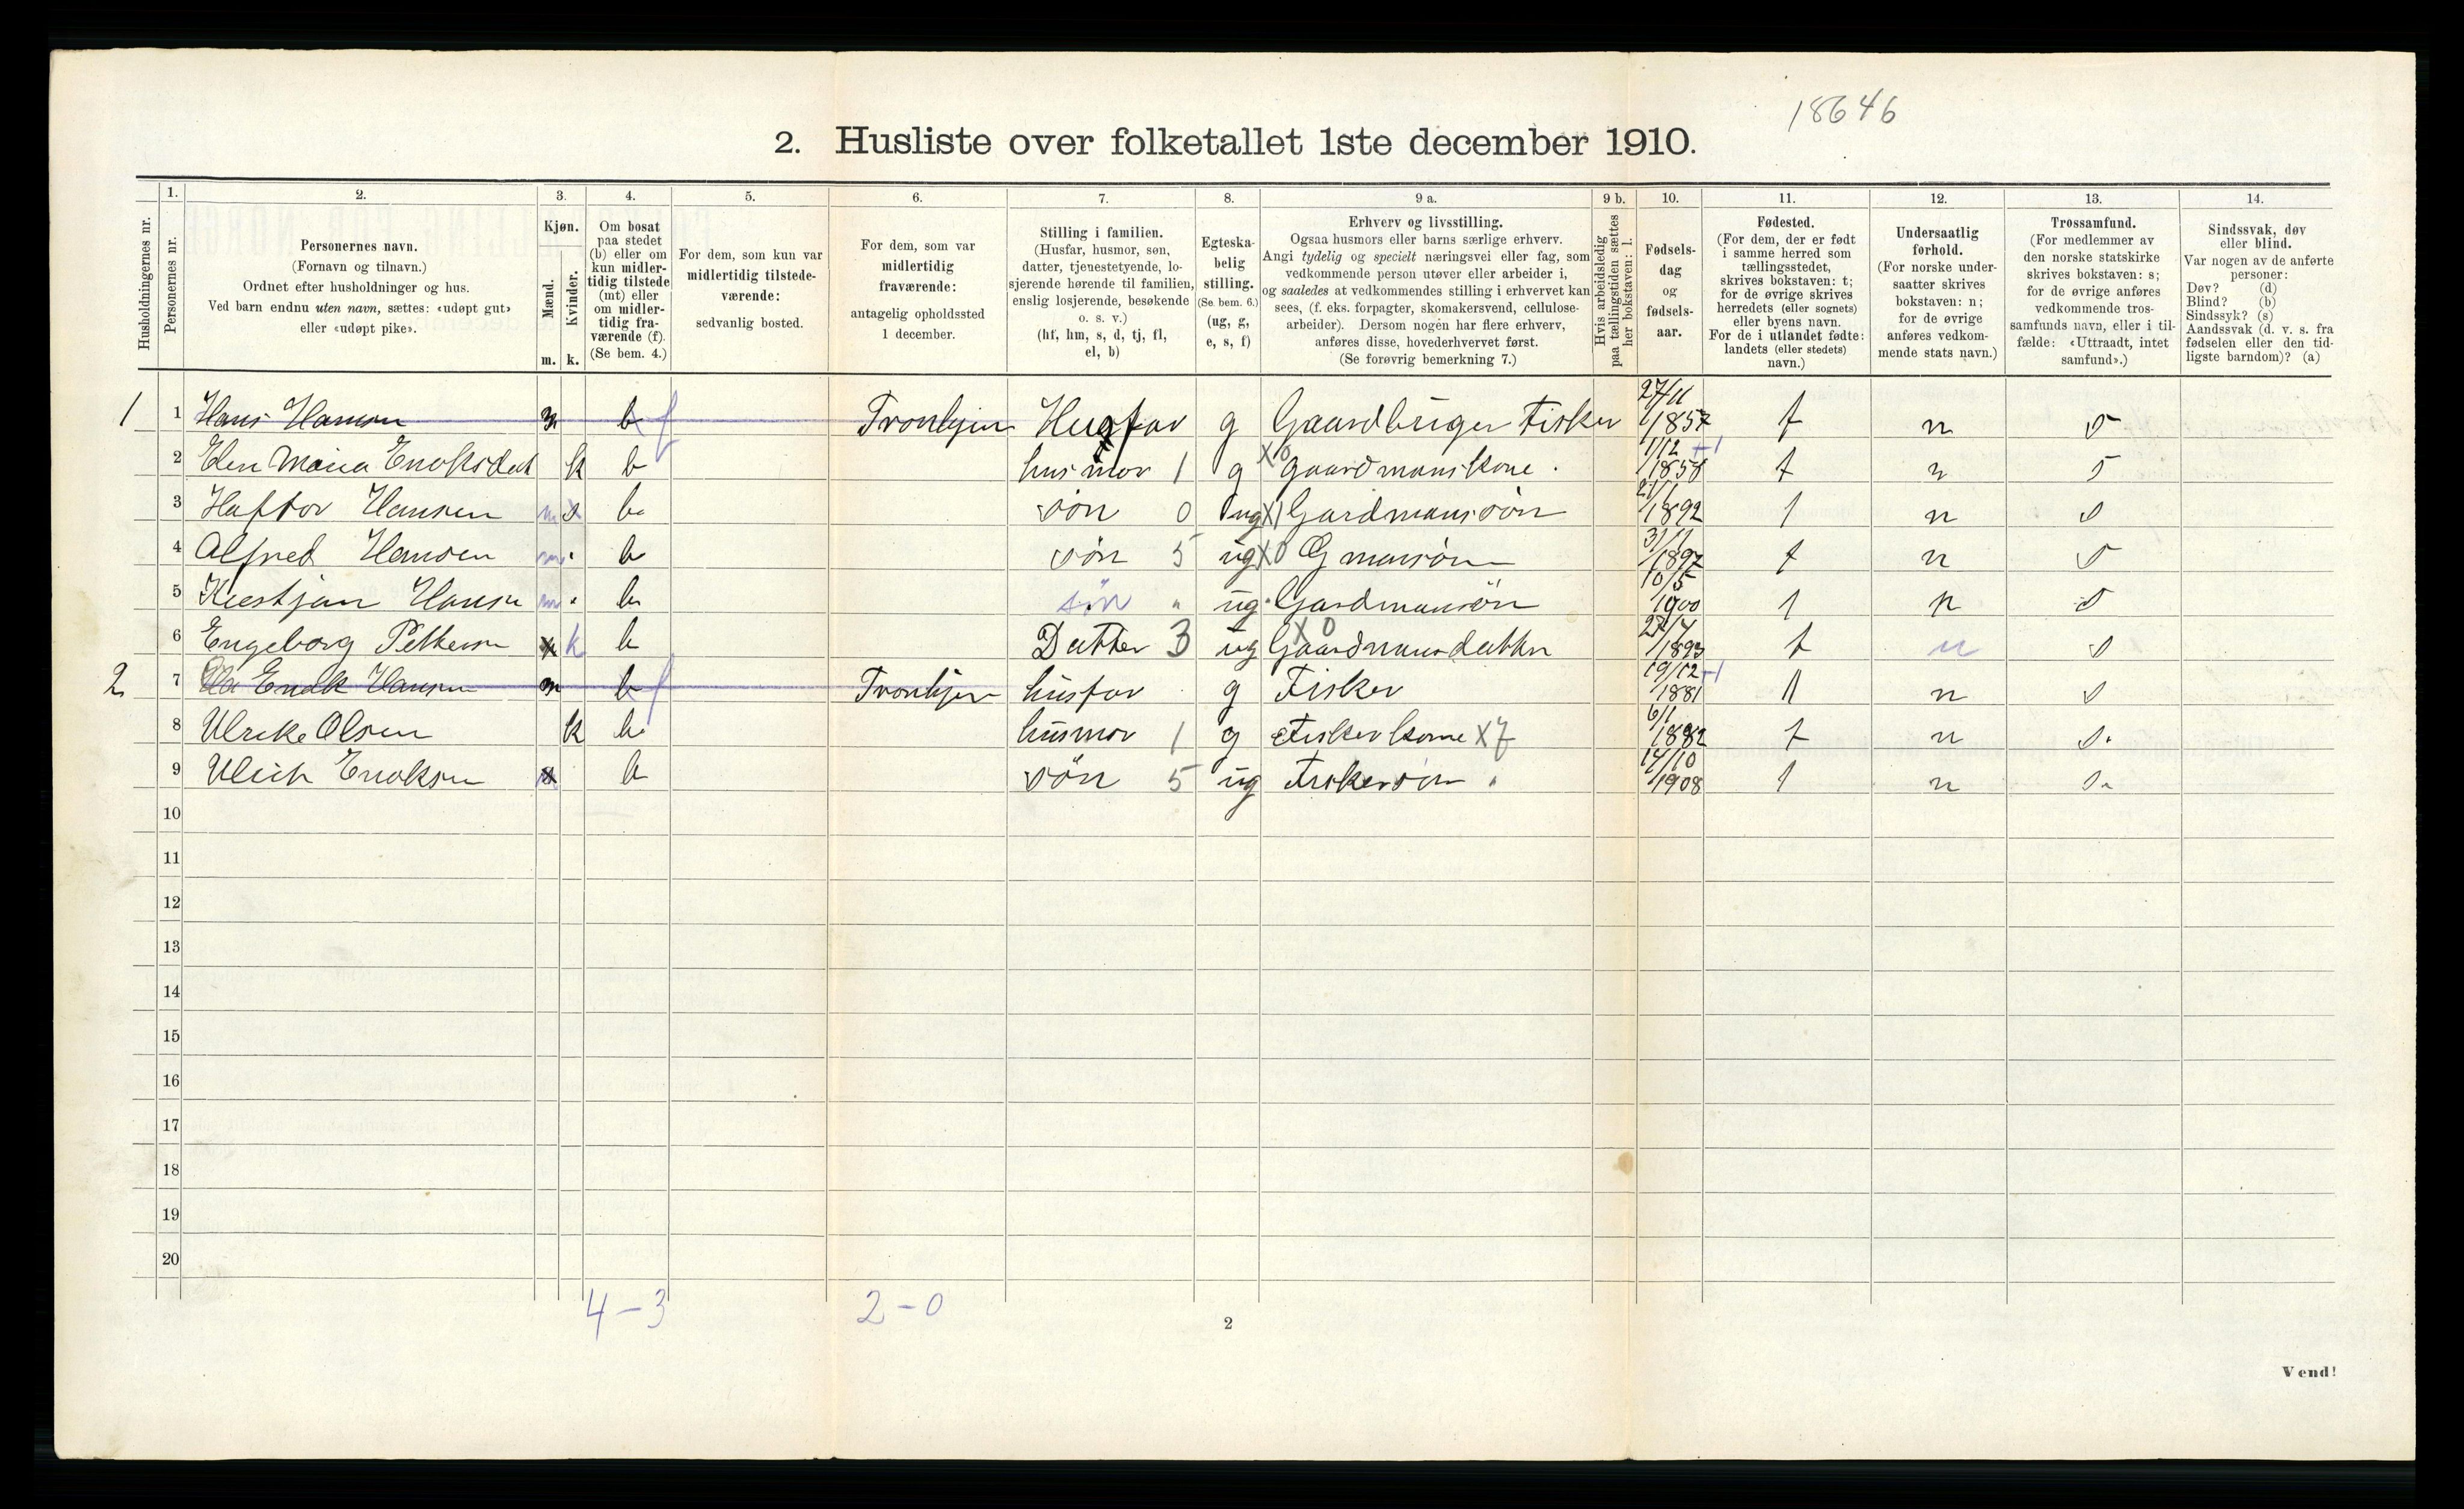 18646
2. Husliste over folketallet 1ste december 1910.
Husholdningernes nr.
1.
Personernes nr.
2.
Personernes navn.
(Fornavn og tilnavn.)
Ordnet efter husholdninger og hus.
Ved barn endnu uten navn, sættes: «udøpt gut»
eller «udøpt pike».
3.
Kjøn.
Mænd.
Kvinder.
m. k.
4.
Om bosat
paa stedet
(b) eller om
kun midler-
tidig tilstede
(mt) eller
om midler-
tidig fra-
værende (f).
(Se bem. 4.)
5.
For dem, som kun var
midlertidig tilstede-
værende:
sedvanlig bosted.
6.
For dem, som var
midlertidig
fraværende:
antagelig opholdssted
1 december.
7.
Stilling i familien.
(Husfar, husmor, søn,
datter, tjenestetyende, lo-
sjerende hørende til familien,
enslig losjerende, besøkende
o. s. v.)
(hf, hm, s, d, tj, fl,
el, b)
8.
Egteska-
belig
stilling.
(Se. bem. 6.)
(ug, g,
e, s, f)
9 a.
Erhverv og livsstilling.
Ogsaa husmors eller barns særlige erhverv.
Angi tydelig og specielt næringsvei eller fag, som
vedkommende person utøver eller arbeider i,
og saaledes at vedkommendes stilling i erhvervet kan
sees, (f. eks. forpagter, skomakersvend, cellulose-
arbeider). Dersom nogen har flere erhverv,
anføres disse, hovederhvervet først.
(Se forøvrig bemerkning 7.)
9 b.
Hvis arbeidsledig
paa tællingstiden sættes
her bokstaven: l.
10.
Fødsels-
dag
og
fødsels-
aar.
11.
Fødested.
(For dem, der er født
i samme herred som
tællingsstedet,
skrives bokstaven: t;
for de øvrige skrives
herredets (eller sognets)
eller byens navn.
For de i utlandet fødte:
landets (eller stedets)
navn.)
12.
Undersaatlig
forhold.
(For norske under-
saatter skrives
bokstaven: n;
for de øvrige
anføres vedkom-
mende stats navn.)
13.
Trossamfund.
(For medlemmer av
den norske statskirke
skrives bokstaven: s;
for de øvrige anføres
vedkommende tros-
samfunds navn, eller i til-
fælde: «Uttraadt, intet
samfund».)
14.
Sindssvak, døv
eller blind.
Var nogen av de anførte
personer:
Døv? (d)
Blind? (b)
Sindssyk? (s)
Aandssvak (d. v. s. fra
fødselen eller den tid-
ligste barndom)? (a)
1 1 Hans Hansen m b f Tronhjem Husfar g Gaardbruger Fisker 27/11 1857 t n s
2 Elen Maria Enoksdat k b husmor 1 g X0 gaardmanskone. 1/12 1858 t n s
3 Haftor Hansen m b søn 0 ug X1 Gardmansøn 21/1 1892 t n s
4 Alfred Hansen m b søn 5 ug X0 G mansøn 31/1 1897 t n s
5 Kristjan Hansen m b søn " ug Gardmansøn 10/5 1900 t n s
6 Engeborg Pettersen k b Datter 3 ug X0 Gaardmansdatter 27/4 1893 t n s
2 7 Enok Hansen m b f Tronhjem husfar g Fisker 19/12 1881 t n s
8 Ulrike Olsen k b husmor 1 g Fisker kone X7 6/1 1882 t n s.
9 Ulrik Enoksen m b søn 5 ug Fiskersøn " 14/10 1908 t n s.
10
11
12
13
14
15
16
17
18
19
20
4 – 3 2 – 0
2
Vend!